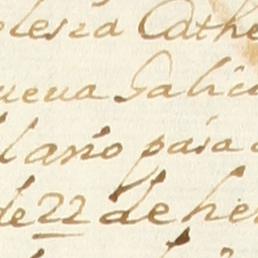 olesia Cathe
ueva Galici
l año para
de 22 de he